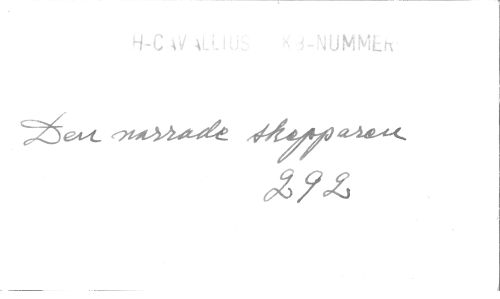 H-CAVALLIUS KB-NUMMER
Den narrade skepparen
292